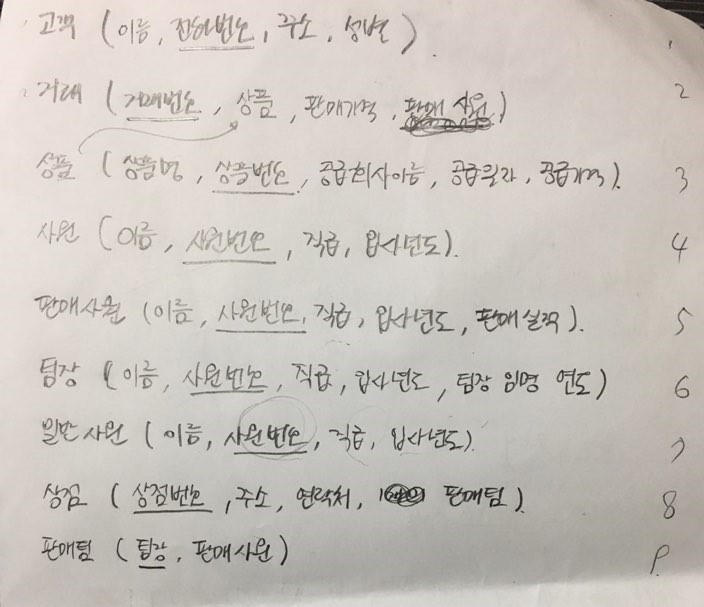 고객 (이름, 전화번호, 주소, 성별) 1
거래 (거래번호, 상품, 판매가격, 판매사원) 2
상품 (상품명, 상품번호, 공급회사이름, 공급일자, 공급가격). 3
사원 (이름, 사원번호, 직급, 입사년도). 4
판매사원 (이름, 사원번호, 직급, 입사년도, 판매실적). 5
팀장 (이름, 사원번호, 직급, 입사년도, 팀장 임명 연도) 6
일반사원 (이름, 사원번호, 직급, 입사년도). 7
상점 (상점번호, 주소, 연락처, 판매팀). 8
판매팀 (팀장, 판매사원) 9.